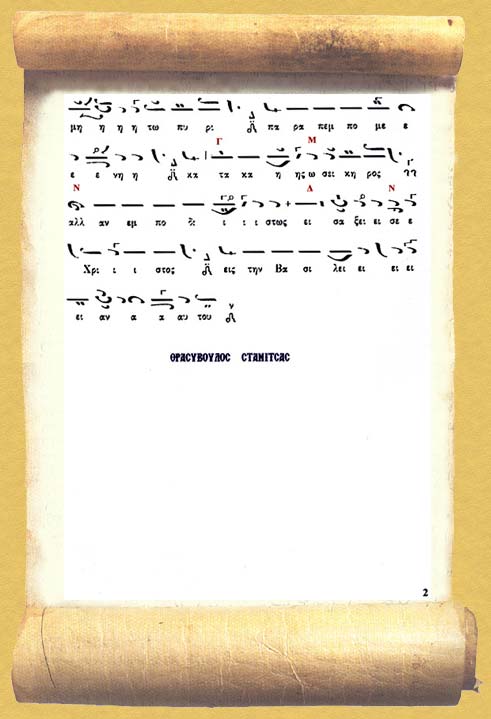 μη η η η τω πυ ρι πα ρα πεμ πο με ε
Γ Μ
ε ε νη η κα τα κα η ης ω σει κη ρος
Ν Δ Ν
αλλ αν εμ πο δι ι ι ι στως ει σα ξει ει σε ε
Χρι ι ι στος εις την Βα σι λει ει ει ει
ει αν α α αυ του ν
ΘΡΑCΥΒΟΥΛΟC CΤΑΝΙΤCΑC
2